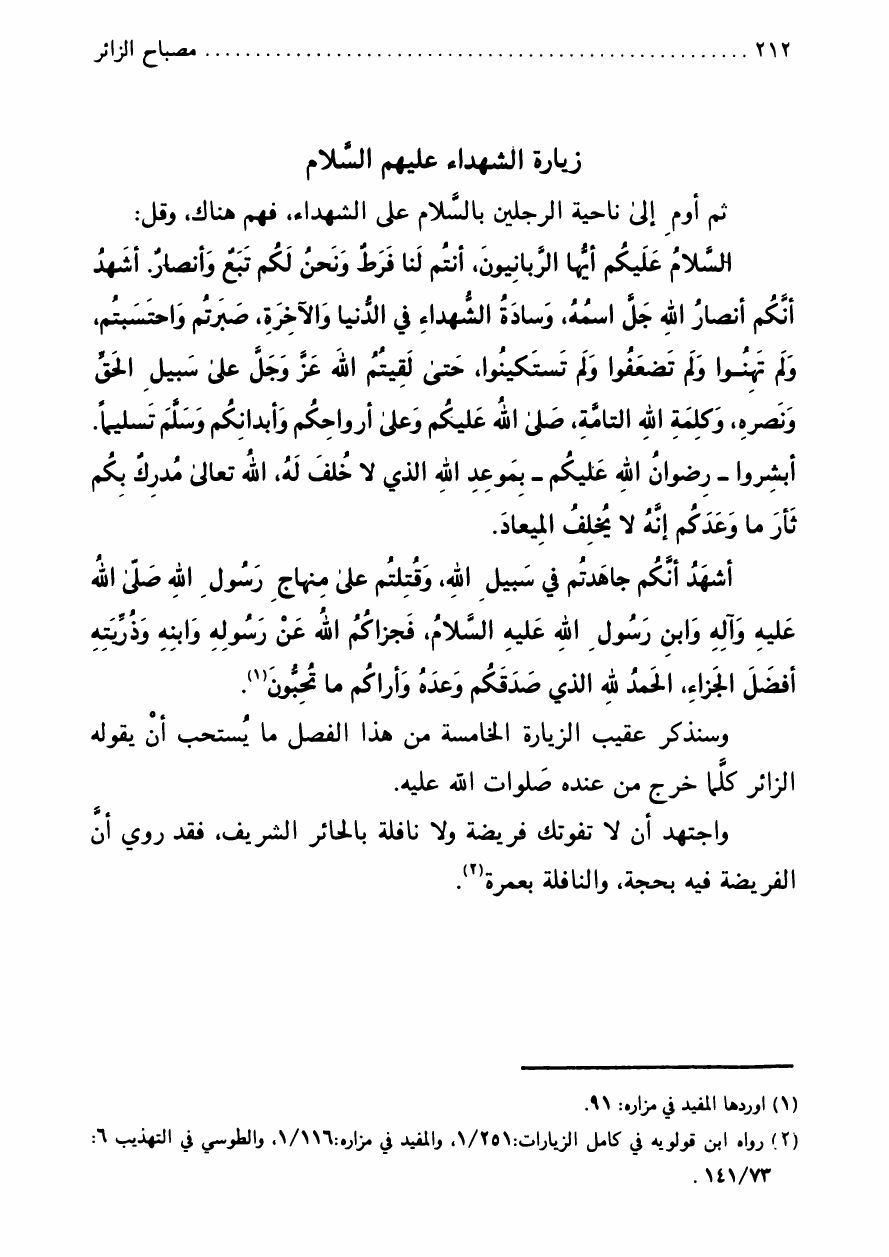 ٢١٢ ........................................................ مصباح الزائر
زيارة الشهداء عليهم السَّلام
ثم أومِ إلىٰ ناحية الرجلين بالسَّلام على الشهداء، فهم هناك، وقل:
السَّلامُ عَلَيكُم أيُّها الرَّبانِيونَ، أنتُم لَنا فَرَطٌ وَنَحنُ لَكُم تَبَعٌ وَأنصارٌ. أشهَدُ
أنَّكُم أنصارُ اللهِ جَلَّ اسمُهُ، وَسادَةُ الشُّهداءِ في الدُّنيا وَالآخِرَةِ، صَبَرتُم وَاحتَسَبتُم،
وَلَم تَهِنُــوا وَلَم تَضعَفُوا وَلَم تَستَكينُوا، حَتىٰ لَقِيتُمُ اللهَ عَزَّ وَجَلَّ علىٰ سَبيلِ الحَقِّ
وَنَصرِهِ، وَكلِمَةِ اللهِ التامَّةِ، صَلىٰ اللهُ عَليكُم وَعلىٰ أرواحِكُم وَأبدانِكُم وَسَلَّمَ تَسليماً.
أبشِروا ـ رِضوانُ اللهِ عَليكُم ـ بِمَوعِدِ اللهِ الذي لا خُلفَ لَهُ، اللهُ تعالىٰ مُدرِكٌ بِكُم
ثَأرَ ما وَعَدَكُم إنَّهُ لا يُخلِفُ الميعادَ.
أشهَدُ أنَّكُم جاهَدتُم في سَبيلِ اللهِ، وَقُتِلتُم علىٰ مِنهاجِ رَسُولِ اللهِ صَلّىٰ اللهُ
عَليهِ وَآلِهِ وَابنِ رَسُولِ اللهِ عَليهِ السَّلامُ، فَجزاكُمُ اللهُ عَنْ رَسُولِهِ وَابنِهِ وَذُرِّيَتِهِ
أفضَلَ الجَزاءِ، الحَمدُ للهِ الذي صَدَقَكُم وَعدَهُ وَأراكُم ما تُحِبُّونَ(١).
وسنذكر عقيب الزيارة الخامسة من هذا الفصل ما يُستحب أنْ يقوله
الزائر كلَّما خرج من عنده صَلوات الله عليه.
واجتهد أن لا تفوتك فريضة ولا نافلة بالحائر الشريف، فقد روي أنَّ
الفريضة فيه بحجة، والنافلة بعمرة(٢).
(١) اوردها المفيد في مزاره: ٩١.
(٢) رواه ابن قولويه في كامل الزيارات:١/٢٥١، والمفيد في مزاره:١/١١٦، والطوسي في التهذيب ٦:
١٤١/٧٣ .